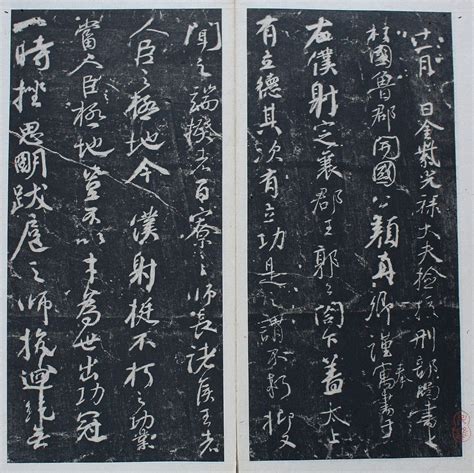 十一月 日金紫光祿大夫檢校刑部尚書上
柱國魯郡開國公顏真卿謹奉寓書于
右僕射定襄郡王郭公閤下蓋太上
有立德其次有立功是之謂不朽抑又
聞之端揆者百寮之師長諸侯王者
人臣之極地今僕射挺不朽之功業
當人臣極地豈不以才為世出功冠
一時挫思明跋扈之師抗迴紇無